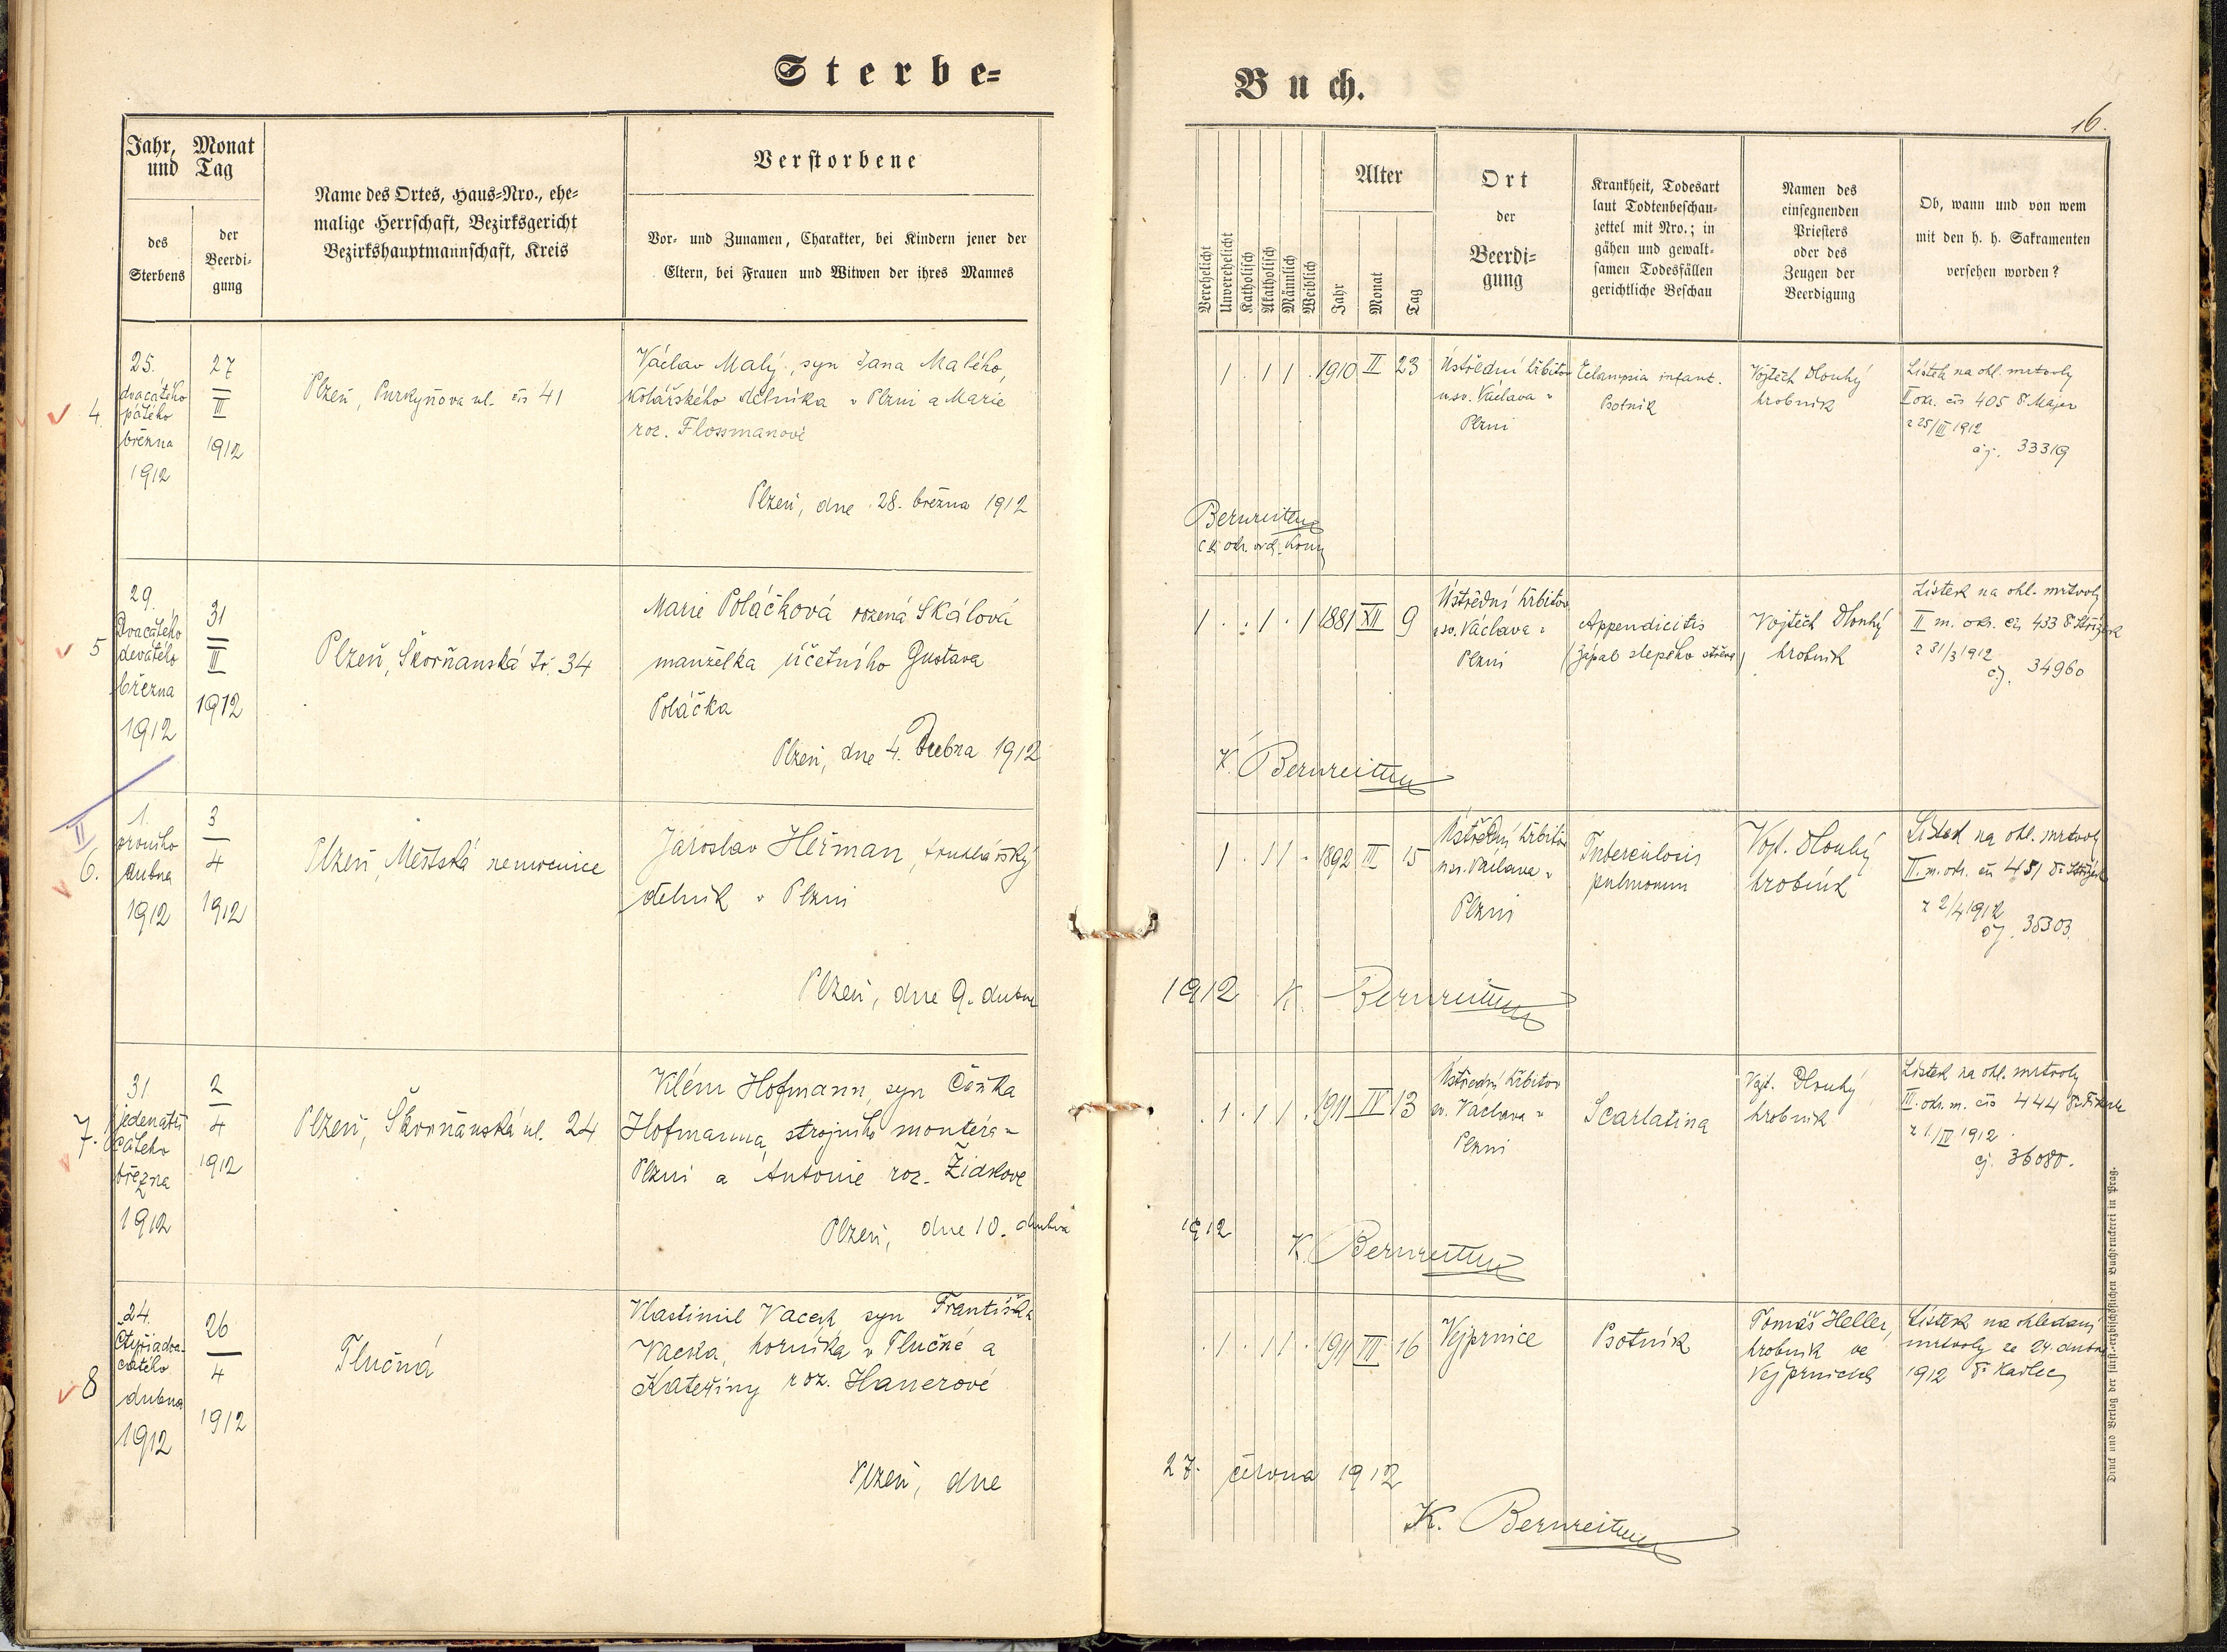 Sterbe=
Buch.
16.
Jahr, Monat
und Tag
des
Sterbens
der
Beerdi-
gung
Name des Ortes, Haus=Nro., ehe=
malige Herrschaft, Bezirksgericht
Bezirkshauptmannschaft, Kreis
Verstorbene
Vor- und Zunamen, Charakter, bei Kindern jener der
Eltern, bei Frauen und Witwen der ihres Mannes
Verehelicht
Unverehelicht
Katholisch
Akatholisch
Männlich
Weiblich
Alter
Jahr
Monat
Tag
Ort
der
Beerdi=
gung
Krankheit, Todesart
laut Todtenbeschau=
zettel mit Nro.; in
gähen und gewalt=
samen Todesfällen
gerichtliche Beschau
Namen des
einsegnenden
Priesters
oder des
Zeugen der
Beerdigung
Ob, wann und von wem
mit den h. h. Sakramenten
versehen worden?
4
25.
dvacátého
pátého
března
1912
27
III
1912
Plzeň, Purkyňova ul. čís 41
Václav Malý, syn Jana Malého,
kolářského dělníka v Plzni a Marie
roz. Flossmanové
Plzeň, dne 28. března 1912
1 . 1 1 . 1910 II 23
Ústřední hřbitov
u sv. Václava v
Plzni
Eclampsia infant.
Psotník
Vojtěch Dlouhý
hrobník
Lístek na ohl. mrtvoly
II okr. čís 405 Dr Majer
z 25/III 1912
čj. 33319
Bernreiter
5
29.
Dvacátého
devátého
března
1912
31
III
1912
Plzeň, Škorňanská tř. 34
Marie Poláčková rozená Skálová
manželka účetního Gustava
Poláčka
Plzeň, dne 4. Dubna 1912
1 . . 1 . 1 1881 XII 9
Ústřední hřbitov
u sv. Václava v
Plzni
Appendicitis
(zápal slepého střeva)
Vojtěch Dlouhý
hrobník
Lístek na ohl. mrtvoly
II m. okr. čís 433
z 31/3 1912
čj. 34960
K. Bernreiter
II
6.
1.
prvního
dubna
1912
3
4
1912
Plzeň, Městská nemocnice
Jaroslav Heřman, truhlářský
dělník v Plzni
Plzeň, dne 9. dubna
1 . 1 1 . 1892 III 15
Ústřední hřbitov
u sv. Václava v
Plzni
Tuberculosis
pulmonum
Vojt. Dlouhý
hrobník
Lístek na ohl. mrtvoly
II. m. okr. čís 451
z 2/4 1912
čj. 35303.
1912 K. Bernreiter
7.
31
jedenatři
cátého
března
1912
2
4
1912
Plzeň, Škorňanská ul. 24
Klém Hofmann, syn Čeňka
Hofmanna, strojního montéra v
Plzni a Antonie roz. Židkové
Plzeň, dne 10. dubna
. 1 . 1 1 . 1911 IV 13
Ústřední hřbitov
sv. Václava v
Plzni
Scarlatina
Vojt. Dlouhý
hrobník
Lístek na ohl. mrtvoly
III. okr. m. čís 444
z 1./IV 1912
čj. 36080.
1912
K. Bernreiter
8
24.
Čtyřiadva-
cátého
dubna
1912
26
4
1912
Tlučná
Vlastimil Vacek syn Františka
Vacka, horníka v Tlučné a
Kateřiny roz. Hanerové
Plzeň, dne
. 1 . 1 1 . 1911 III 16
Vejprnice
Psotník
Tomáš Heller,
hrobník ve
Vejprnicích
Lístek na ohledání
mrtvoly ze 24. dubna
1912 Dr Kadlec
27. června 1912
K. Bernreiter
Druck und Verlag der fürst=erzbischöflichen Buchdruckerei in Prag.